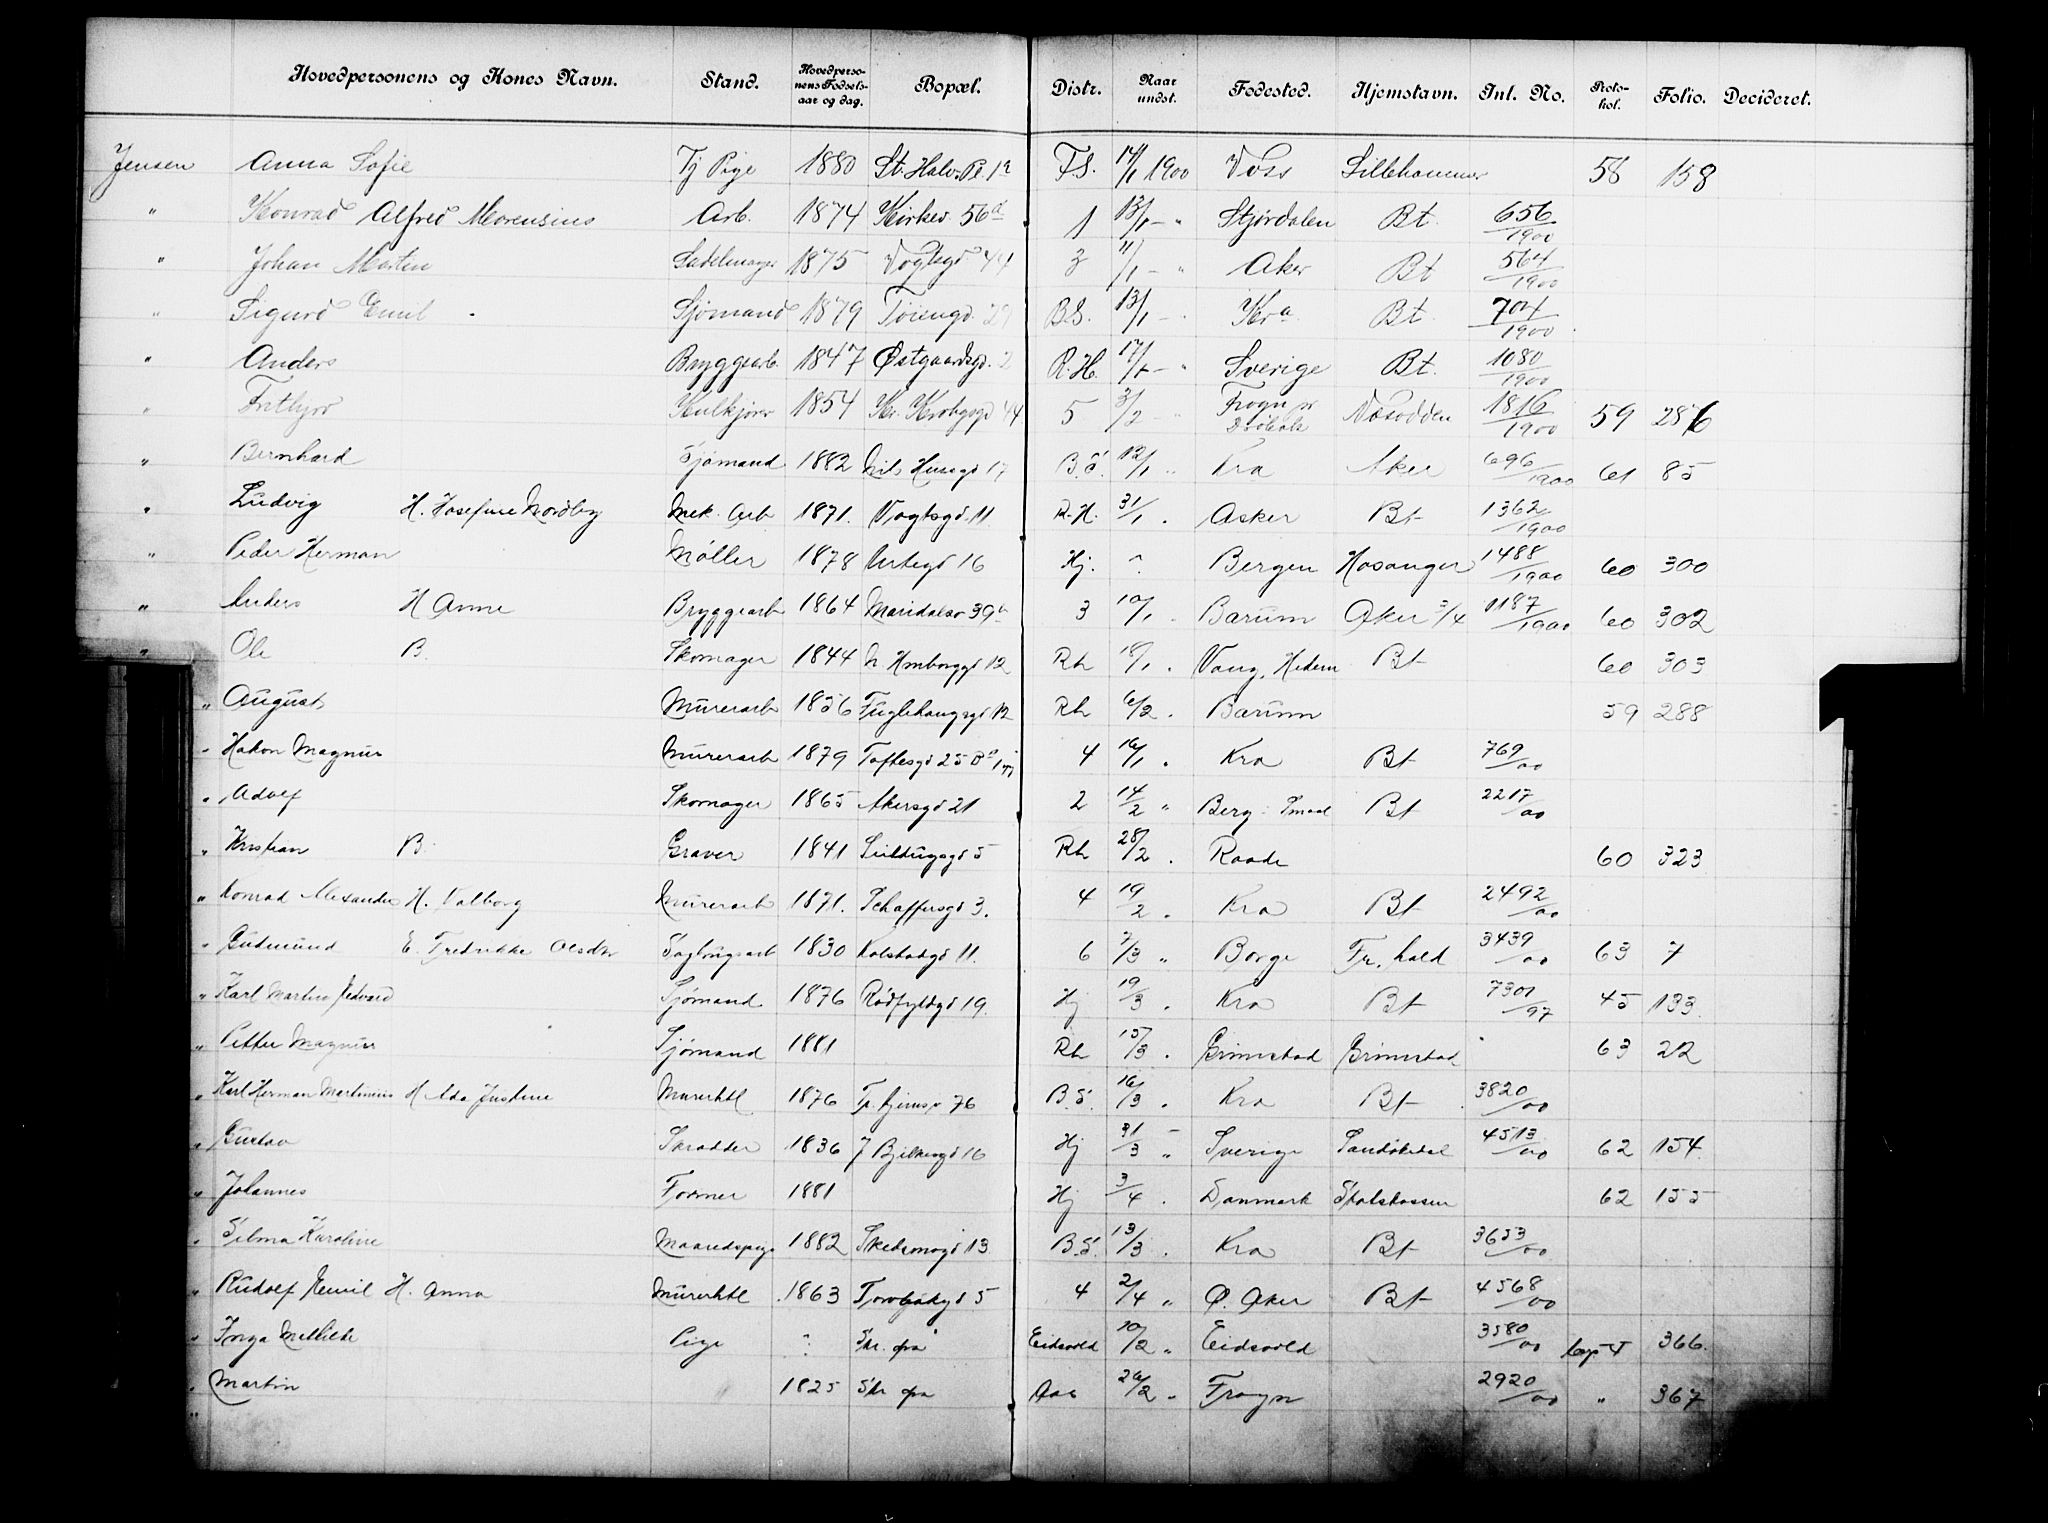 Hovedpersonens og Kones Navn. Stand. Hovedperso-nens Fødsels-aar og dag. Bopæl. Distr. Naar undst. Fødested. Hjemstavn. Inl. No. Proto-kol. Folio. Decideret.
Jensen Anna Sofie Tj Pige 1880 St. Halv. Pl. 1 F.S. 14/1 1900 Voss Lillehammer 58 158
" Konrad Alfred Arb. 1874 Kirkev. 56 1 13/1 - " Stjørdalen Bt. 656/1900
" Johan Martin Sadelmager 1875 Vogtsgd 44 3 11/1 - " Aker Bt 564/1900
" Sigurd Emil Sjømand 1879 Tøiengd. B.S. 13/1 - " Kra. Bt. 704/1900
" Anders Bryggearb. 1847 Østgaardsgd. 2 R.H. 17/1 - " Sverige Bt. 1080/1900
" Frithjof Kulkjører 1854 Kr. Krohgsgd 44 5 3/2 - " Frogn pr Drøbak Næsodden 1816/1900 59 286
" Bernhard Sjømand 1882 Nils Huusgd 17 B.S. 12/1 " Kra Aker 696/1900 61 85
" Ludvig H. Josefine Nordby Mek. Arb 1871. Vogtsgd. 11 R.H. 31/1 . Asker Bt 1362/1900
" Peder Herman Møller 1878 Urtegd 16 Hj. " Bergen Hosanger 1488/1900 60 300
" Anders H Anne Bryggearb 1864 Maridalsv 39 3 10/1 . Bærum Aker 3/4 1187/1900 60 302
" Ole B. Skomager 1844 N. 12 Rh 18/1 . Vang, Hedem Bt 60 303
" August Murerarb 1856 Fuglehaugsgd 12 Rh 6/2 . Bærum 59 288
" Hakon Magnus Murerarb 1879 Toftesgd 25 4 16/1 . Kra Bt 769/00
" Adolf Skomager 1865 Akersgd 21 2 14/2 " Berg Smaal Bt 2217/00
" Kristian B. Graver 1841 5 Rh 28/2 . Raade 60 323
" Konrad Alexander H. Valborg Murerarb 1871. Schaffersgd 3. 4 19/2 . Kra Bt 2492/00
" Gudmund E. Fredrikke Olsdtr Sagbrugsarb 1830 Kolstadgd 11. 6 7/3 " Borge Fr.hald 3439/00 63 7
" Karl Martin Edvard Sjømand 1876 Rødfyldgd 19. Hj 19/3 . Kra Bt 7301/97 45 133.
" Petter Magnus Sjømand 1881 Rh 15/3 . Grimstad Grimstad 63 22
" Karl Herman Martinius H Ada Justine Murerhdl 1876 Tr.hjemsv 76 B.S. 16/3 . Kra Bt 3820/00
" Gustav Skrædder 1836 J Bjelkesgd 16 Hj 31/3 " Sverige Sandøkedal 4513/00 62 154.
" Johannes Former 1881 Hj 3/4 . Danmark 62 155
" Selma Karoline Maanedspige 1882 Skedsmogd 13 B.S. 13/3 . Kra Bt 3653/00
" Rudolf Emil H. Anna Murerhdl 1863 Torvbakgd 5 4 2/4 " Ø. Aker Bt 4568/00
" Inga Mathilde Pige " Skr. fra Eidsvold 10/2 " Eidsvold 3580/00 366.
" Martin 1825 Skr fra Aas 26/2 " Frogn 2920/00 " 367
"